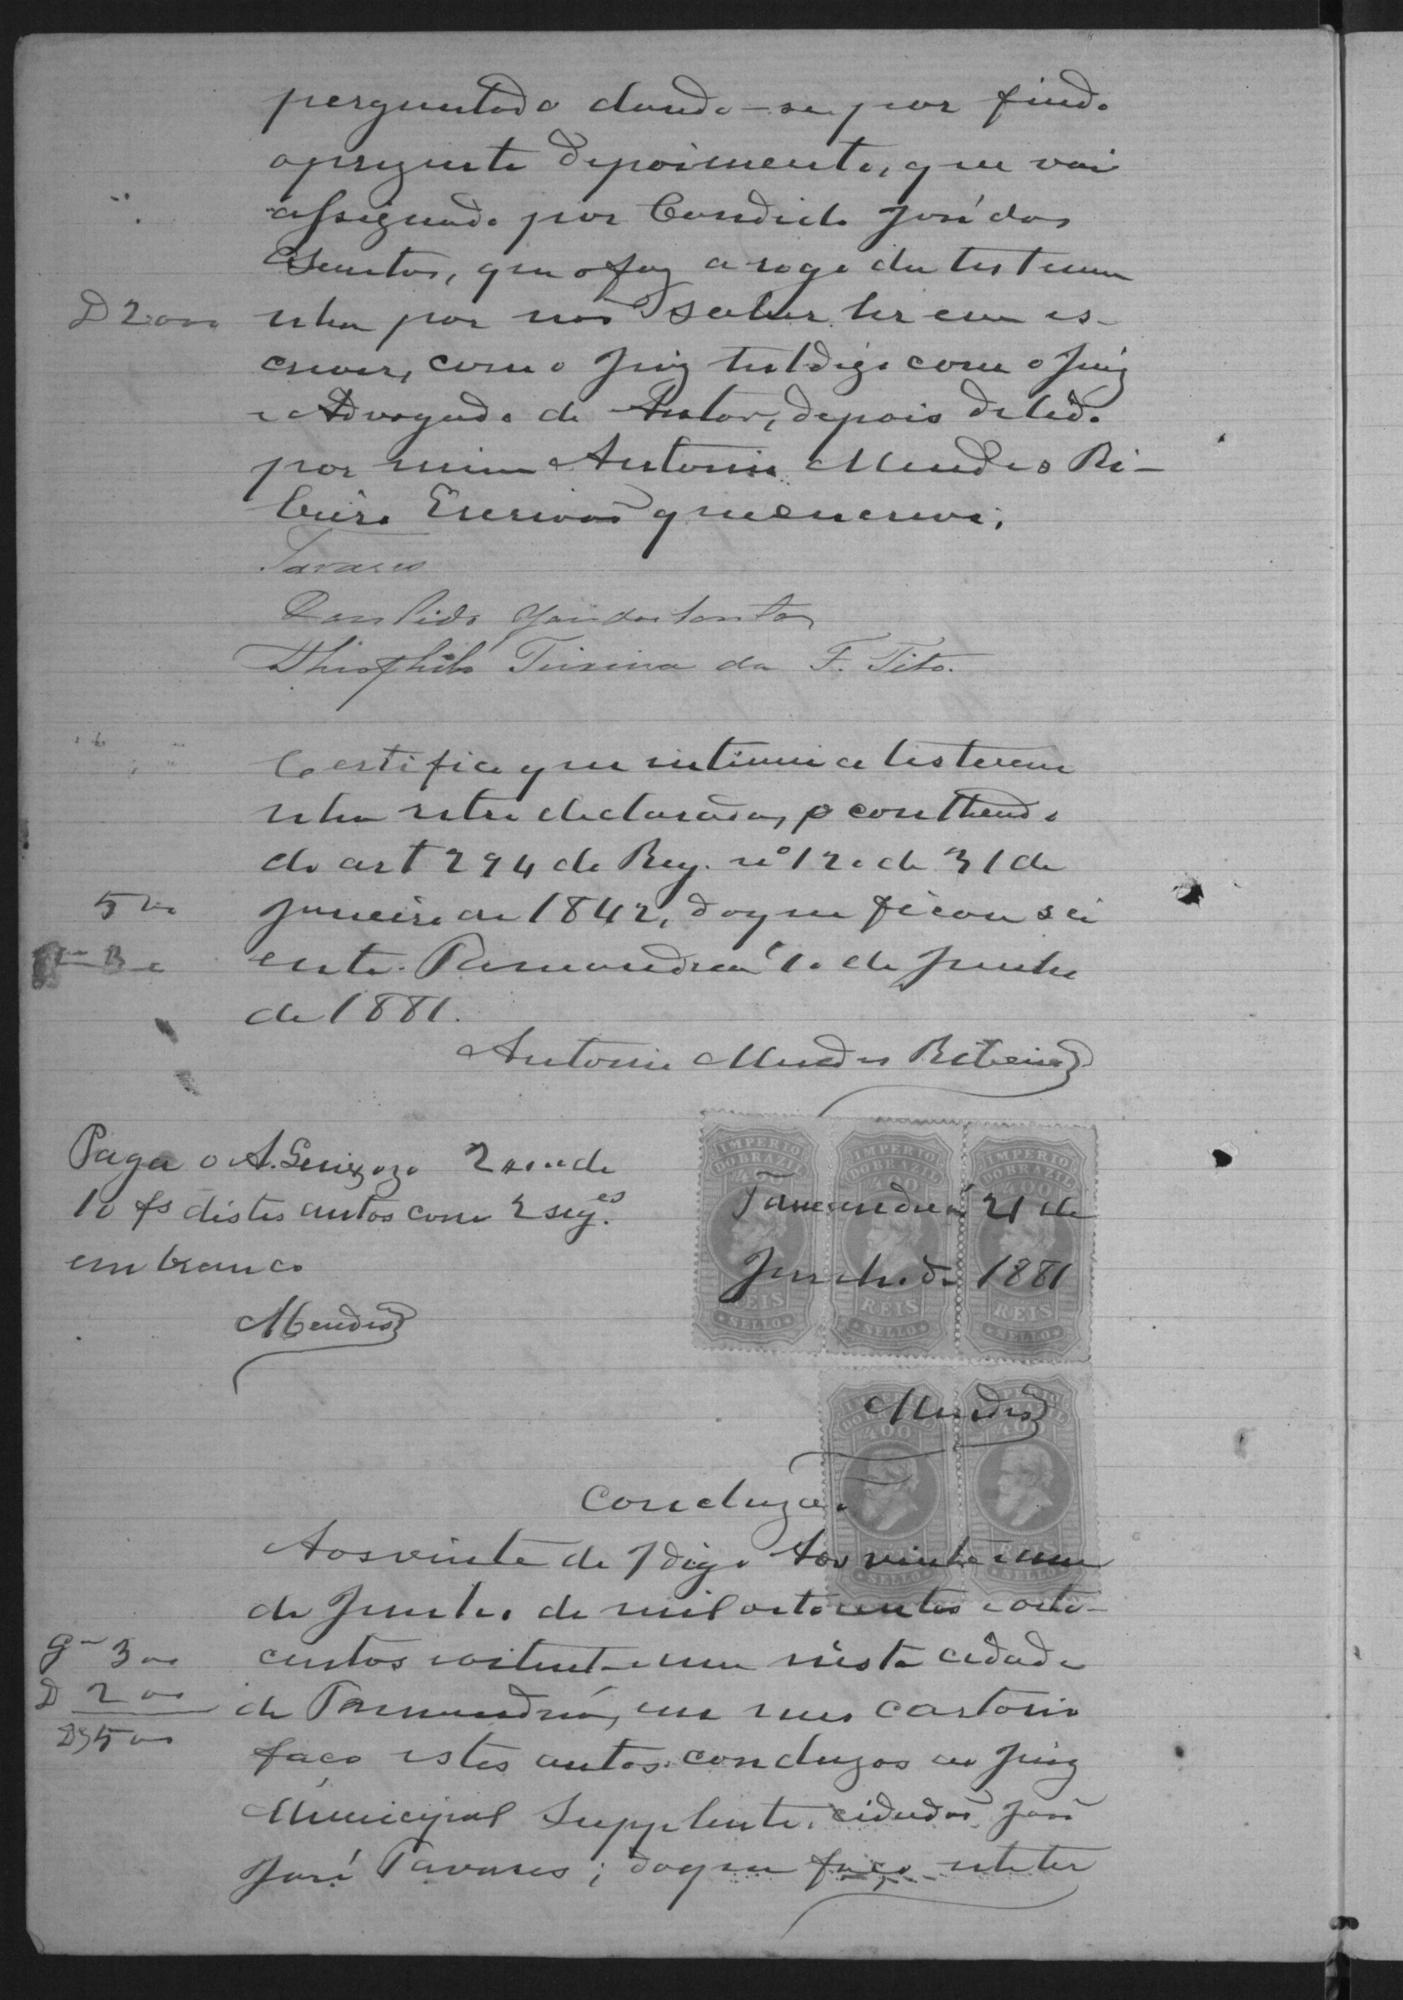 perguntado dando-se por findo
o prezente depoimento, que vai
assignado por Candido José dos
Santos, que o faz a rogo da testemu
D 2000 nha por não saber ler e nem es-
crever, com o Juiz tal digo com o Juiz
e Advogado do Autor, depois de lido
por mim Antonio Mendes Ri-
beiro Escrivão que escrevi.
Tavares
Candido José dos Santos
Theophilo Teixeira da F. Tito.
Certifico que intimei a testemu
nha retro declarada, o contheudo
do art 294 do Reg. nº 120 de 31 de
500 Janeiro de 1842, do que ficou sci
ente. Tamandoá 10 de Junho
de 1881.
Antonio Mendes Ribeiro
Paga o A. 2000 de
10 fs distes autos com 2 seg.es
em branco
Mendes
IMPERIO DO BRAZIL 400 REIS SELLO
IMPERIO DO BRAZIL 400 REIS SELLO
IMPERIO DO BRAZIL 400 REIS SELLO
Tamanduá 21 de
Junho de 1881
IMPERIO DO BRAZIL 400 SELLO
IMPERIO DO BRAZIL 400 SELLO
Mendes
Concluzão
Aos vinte de J digo Aos vinte e um
de Junho de mil oito centos e oito-
G 300 centos e oitenta e um nesta cidade
D 200 de Tamanduá, em meu cartorio
D 500 faço estes autos concluzos ao Juiz
Municipal Supplente, cidadão José
José Tavares; do que faço este ter